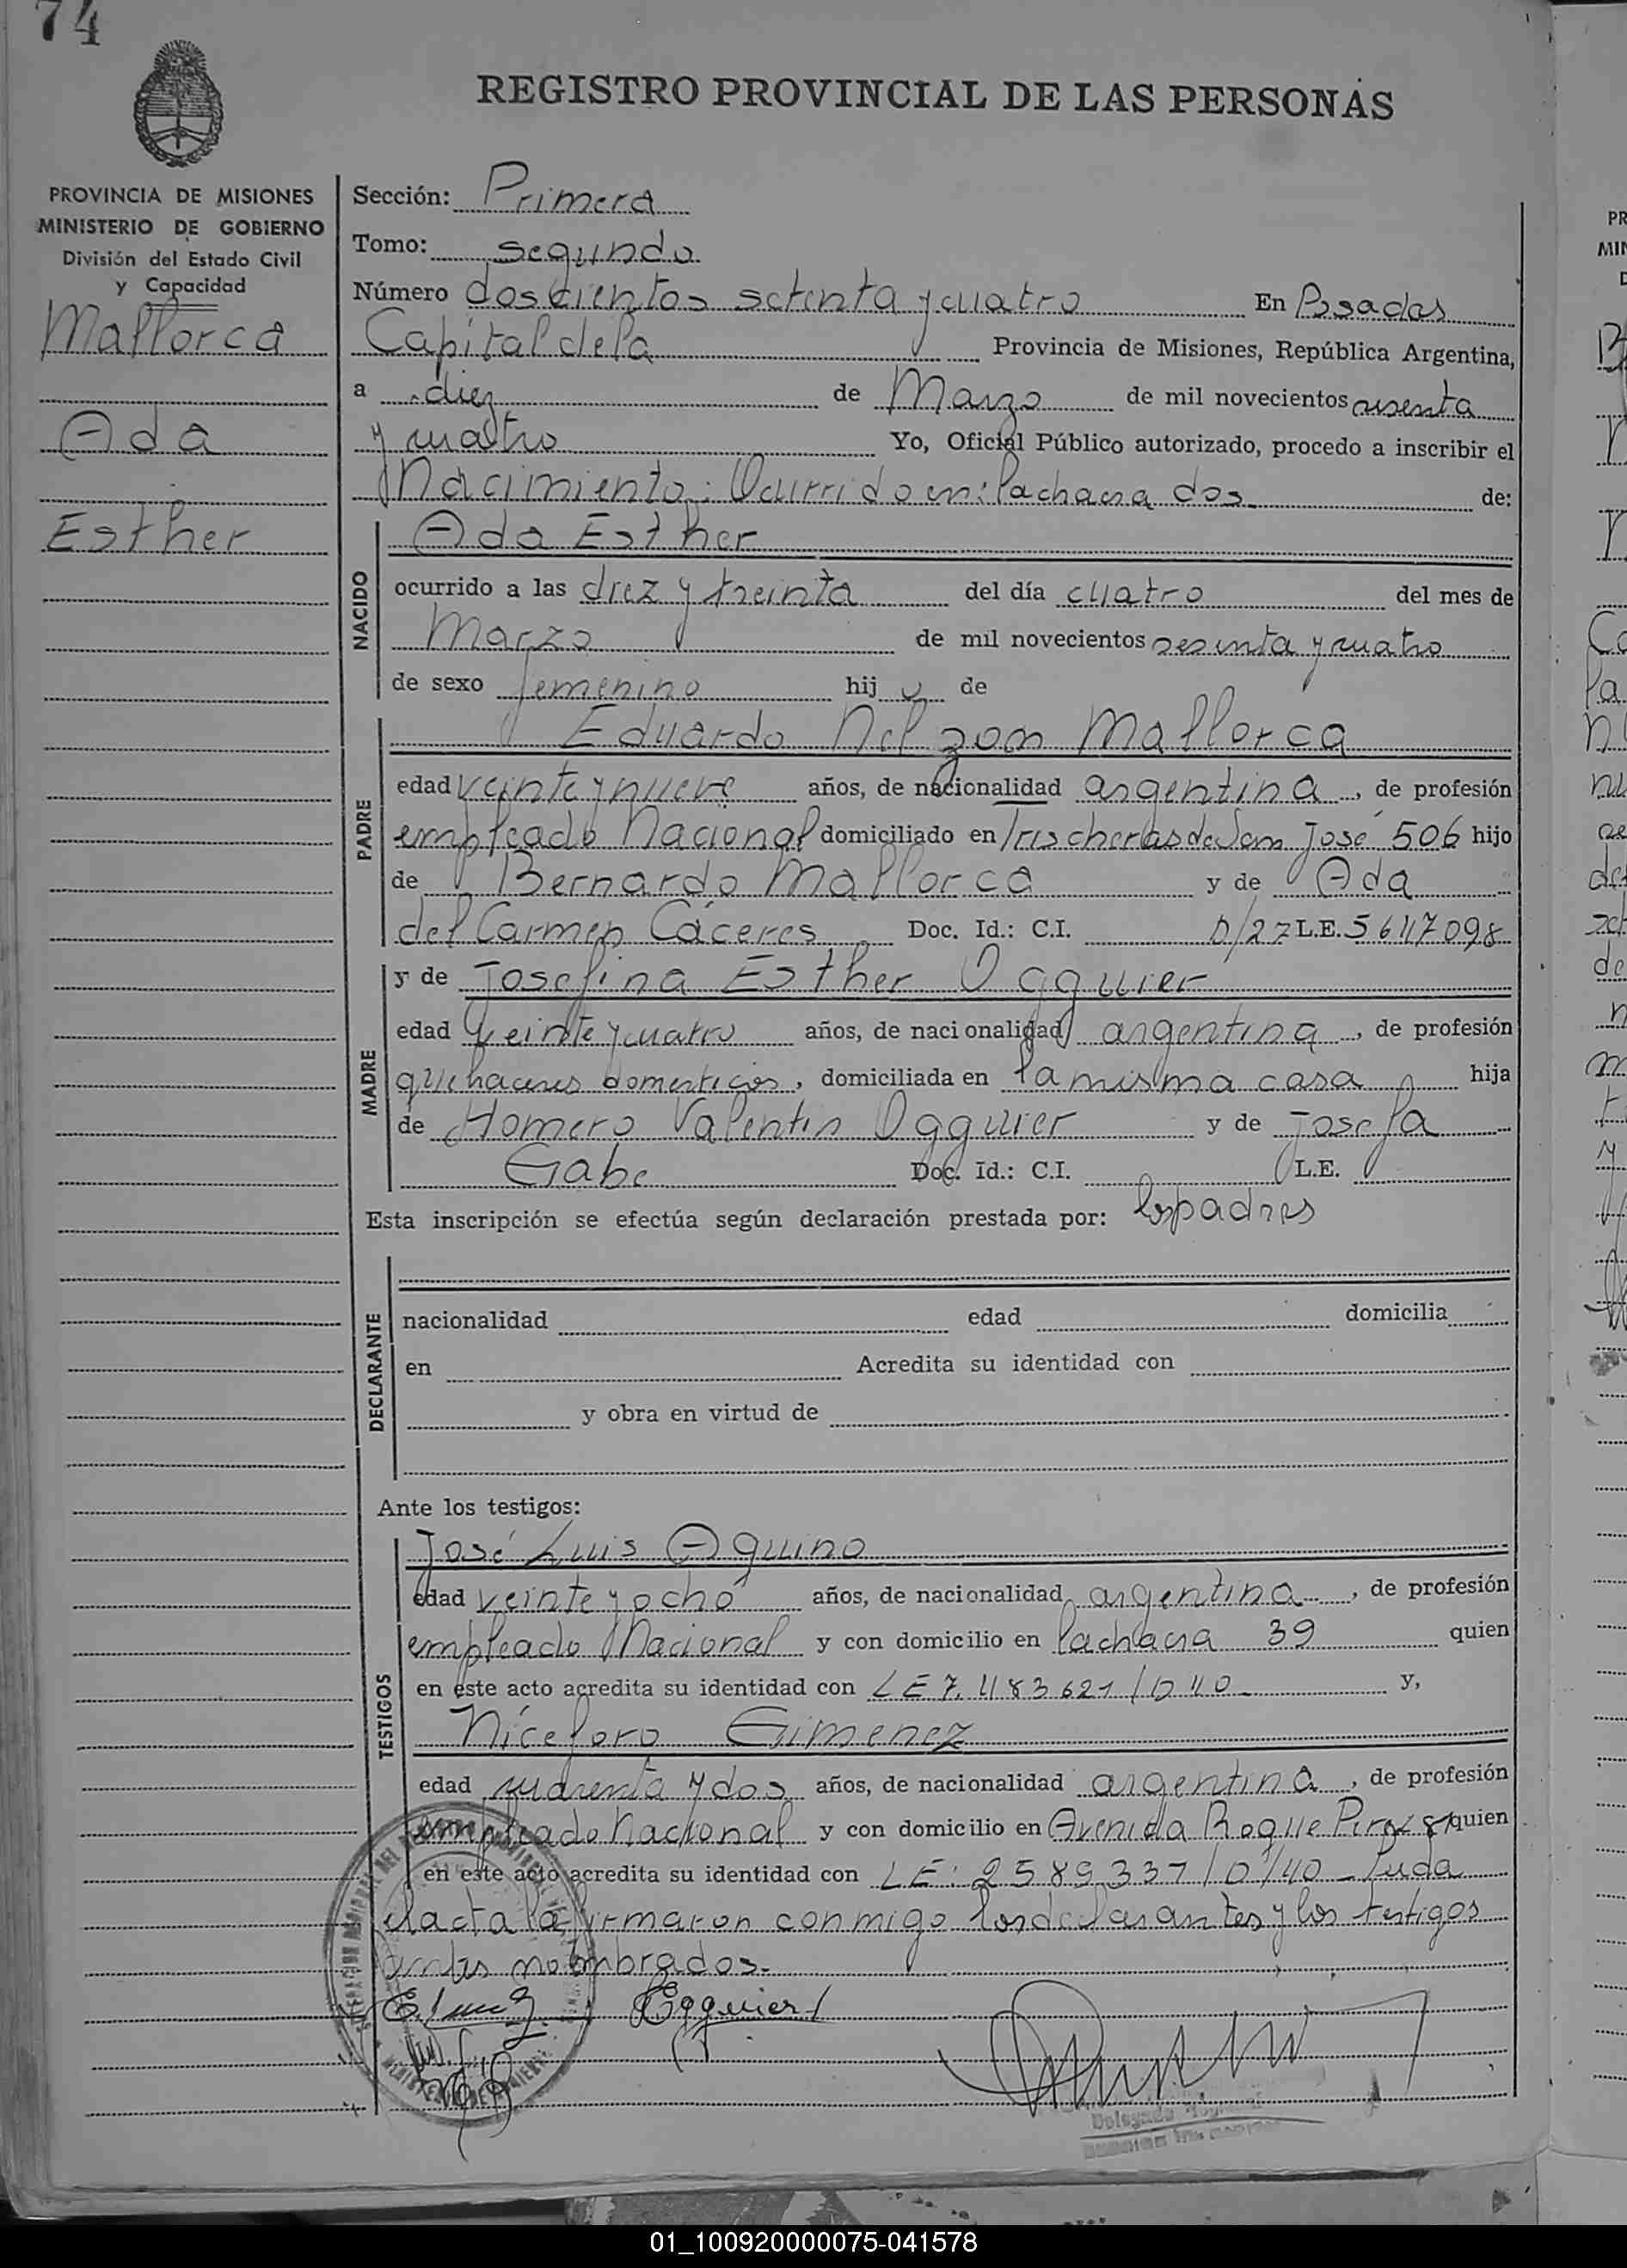 74
REGISTRO PROVINCIAL DE LAS PERSONAS
PROVINCIA DE MISIONES
MINISTERIO DE GOBIERNO
División del Estado Civil
y Capacidad
Mallorca
Ada
Esther
Sección: Primera
Tomo: segundo
Número doscientos setenta y cuatro En Posadas
Capital de la Provincia de Misiones, República Argentina,
a diez de Marzo de mil novecientos sesenta
y cuatro Yo, Oficial Público autorizado, procedo a inscribir el
Nacimiento: Ocurrido en: La chacra dos de:
NACIDO
Ada Esther
ocurrido a las diez y treinta del día cuatro del mes de
Marzo de mil novecientos sesenta y cuatro
de sexo femenino hij de
PADRE
Eduardo Nelzon Mallorca
edad veinte y nueve años, de nacionalidad argentina, de profesión
empleado Nacional domiciliado en Trincheras de San José 506 hijo
de Bernardo Mallorca y de Ada
del Carmen Cáceres Doc. Id.: C.I. D/27 L.E. 5647098
MADRE
y de Josefina Esther Ogguier
edad veinte y cuatro años, de nacionalidad argentina, de profesión
quehaceres domesticos, domiciliada en la misma casa hija
de Homero Valentin Ogguier y de Josefa
Gabe Doc. Id.: C.I. L.E.
Esta inscripción se efectúa según declaración prestada por: los padres
DECLARANTE
nacionalidad edad domicilia
en Acredita su identidad con
y obra en virtud de
Ante los testigos:
TESTIGOS
José Luis Aquino
edad veinte y ocho años, de nacionalidad argentina, de profesión
empleado Nacional y con domicilio en La chacra 39 quien
en este acto acredita su identidad con LE 7.483621/D 40 y,
Níceforo Gimenez
edad cuarenta y dos años, de nacionalidad argentina, de profesión
empleado Nacional y con domicilio en Avenida Roque Perez quien
en este acto acredita su identidad con LE: 2589337/D/40 - Leida
el acta la firmaron conmigo los declarantes y los testigos
antes nombrados.-
Ogguier
01_100920000075-041578